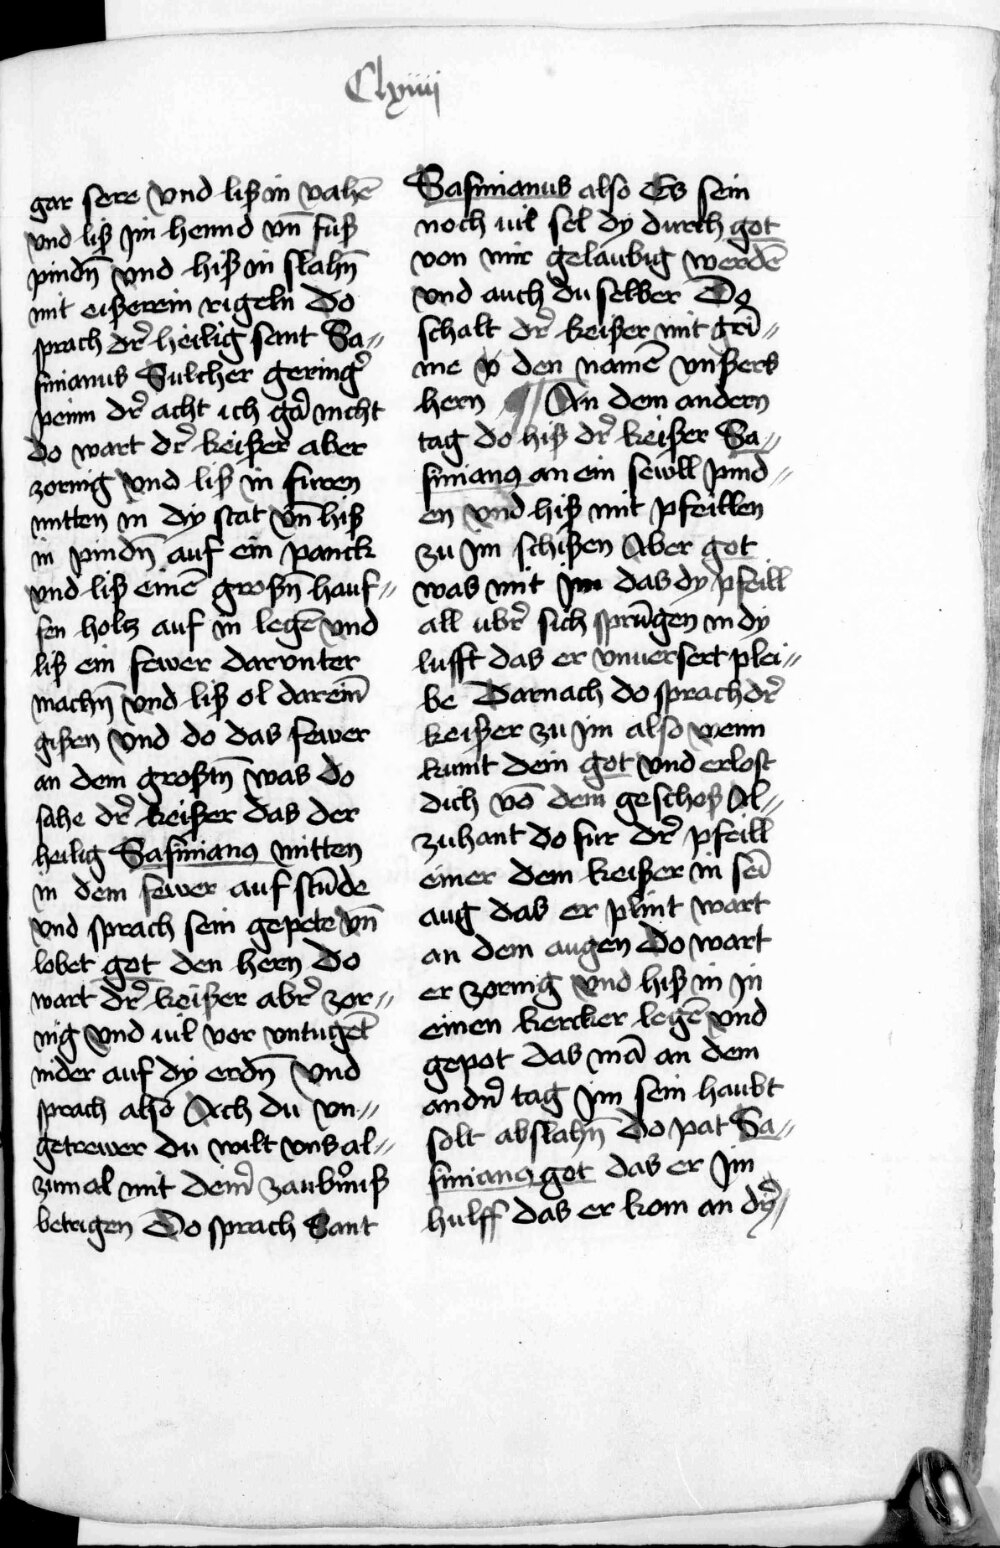 Clxiiij
gar sere vnd liß in vahē
vnd liß jm hennd vn̄ fuß
pindn̄ vnd hiß in slahn̄
mit eißerein rigeln Do
sprach dr̄ heilig sant Sa⸗
finianus Sulcher gering̾
peinn dr̄ acht ich gā nicht
do wart dr̄ keißer aber
zornig vnd liß in furen
mitten in dÿ stat vn̄ hiß
in pindn̄ auf ein panck
vnd liß einē großn̄ hauf⸗
fen holtz auf in legē vnd
liß ein fewer darunter
machn̄ vnd liß ol darein̄
gißen vnd do das fewer
an dem großtn̄ was do
sahe dr̄ keißer das der
heilig Safinianꝯ mitten
in dem fewer auf stūde
vnd sprach sein gepete vn̄
lobet got den hern Do
wart dr̄ keißer abr̄ zor⸗
nig vnd uil vor vntugēt
nider auf dÿ erdn̄ vnd
sprach also Ach du vn⸗
getrewer du wilt vns al⸗
zumal mit deim̄ zaubnuß
betrigen Do sprach Sant
Safinianus also Es sein
noch uil sel dÿ durch got
von mir gelaubig werdē
vnd auch du selber Do
schalt dr̄ keißer mit gri⸗
me v̄ den namē vnßers
hern ¶ An dem andern
tag do hiß dr̄ keißer Sa⸗
finianꝯ an ein sewll pind⸗
en vnd hiß mit pfeillen
zu jm schißen Aber got
was mit jm das dÿ pfeill
all ubr̄ sich sprūgen in dÿ
lufft das er vnuersert plei⸗
be Darnach do sprach dr̄
keißer zu jm also wenn
kumt dein got vnd erlost
dich vō dem geschoß Al⸗
zuhant do fur dr̄ pfeill
einer dem keißer in sei̅
aug das er plint wart
an dem augen Do wart
er zornig vnd hiß in jn
einen kercker legē vnd
gepot das mā an dem
andn̄ tag jm sein haubt
solt abslahn̄ Do pat Sa⸗
finianꝯ got das er jm
hulff das er kom an dÿ